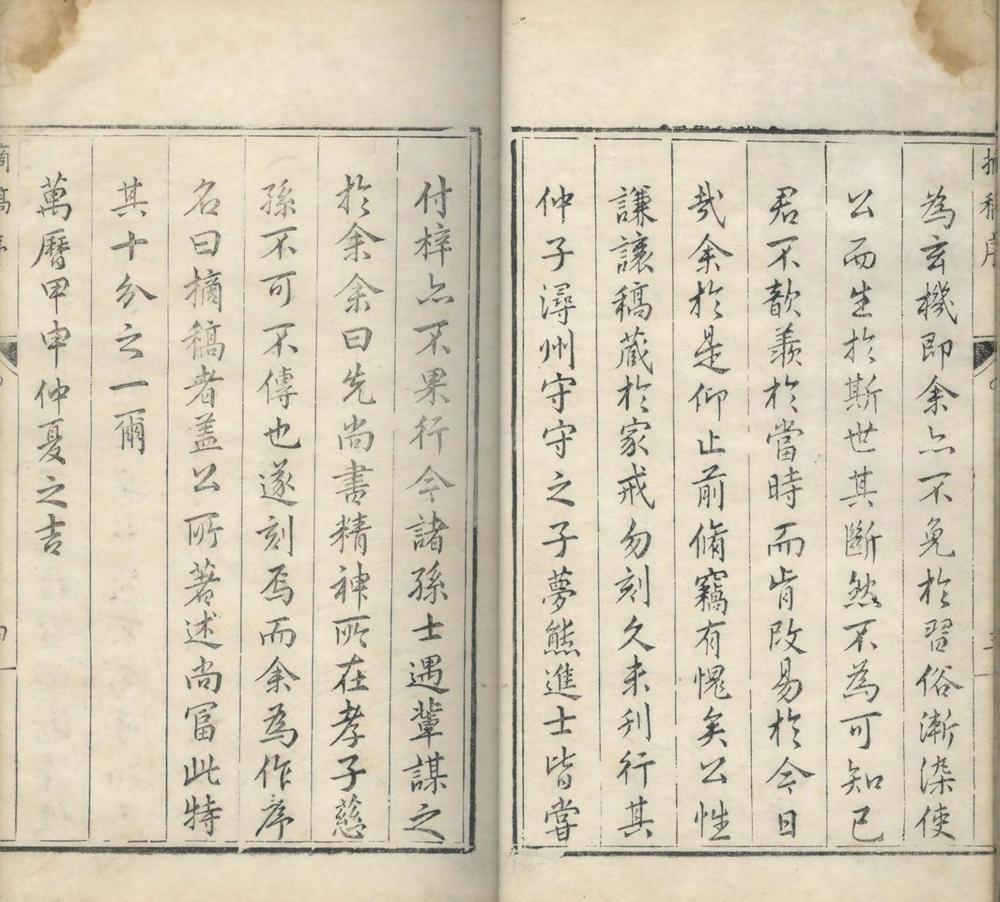 摘稿序
為玄機即余亦不免於習俗漸染使
公而生於斯世其斷然不為可知已
君不歆羨於當時而肯改易於今日
哉余於是仰止前脩竊有愧矣公性
謙讓稿藏於家戒勿刻久未刊行其
仲子潯州守守之子夢熊進士皆嘗
付梓亦不果行今諸孫士遇輩謀之
於余余曰先尚書精神所在孝子慈
孫不可不傳也遂刻焉而余為作序
名曰摘稿者蓋公所著述尚富此特
其十分之一爾
萬曆甲申仲夏之吉
摘稿序
四